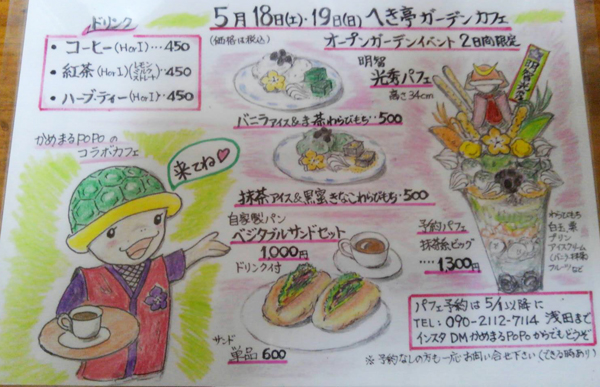 5月18日(土)・19日(日) へき亭ガーデンカフェ
(価格は税込)
オープンガーデンイベント 2日間限定
ドリンク
・コーヒー(HorI)…450
・紅茶(HorI) レモン ミルク ストレート …450
・ハーブ・ティー(HorI)…450
明智
光秀パフェ
高さ34cm
明智光秀
バニラアイス&抹茶わらびもち…500
かめまるPOPOの
コラボカフェ
来てね♡
抹茶アイス&黒蜜きなこわらびもち・500
自家製パン
ベジタブルサンドセット
1,000円
ドリンク付
サンド
単品 600
予約パフェ
抹茶系ビッグ
‥‥1,300円
わらびもち
白玉、栗
プリン
アイスクリーム
(バニラ・抹茶)
フルーツなど
パフェ予約は5/1以降に
TEL: 090-2112-7114 浅田まで
インスタDMかめまるPOPOからでもどうぞ
※予約なしの方も一応お問い合せ下さい(できる時あり)